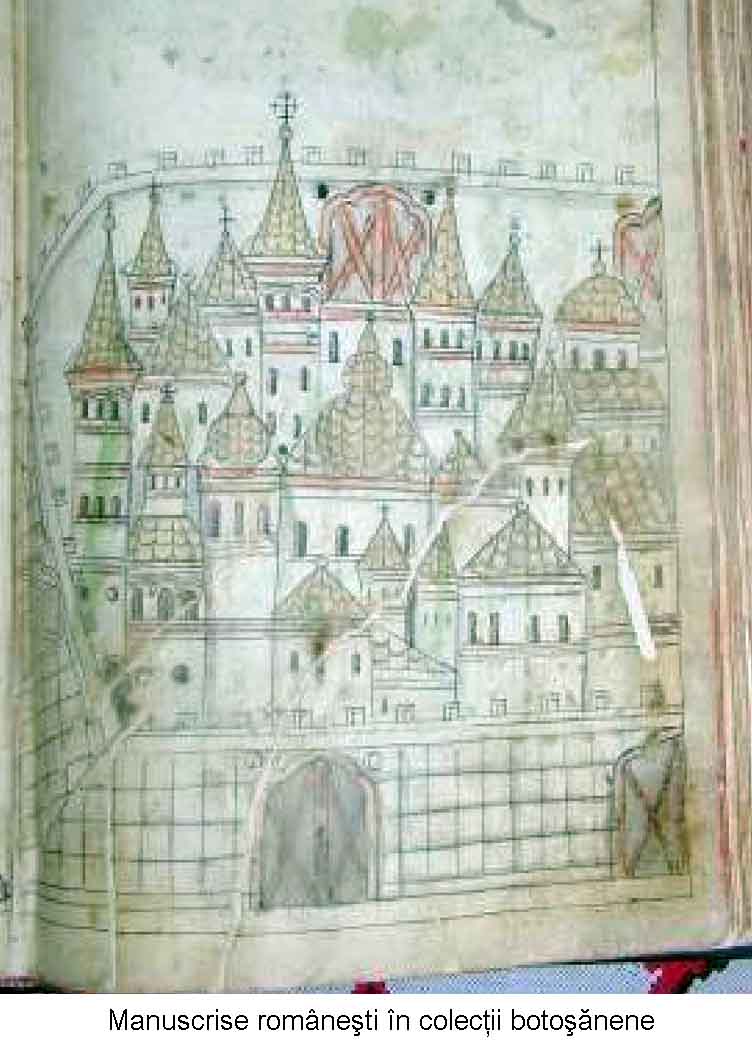 Manuscrise româneşti în colecții botoşănene